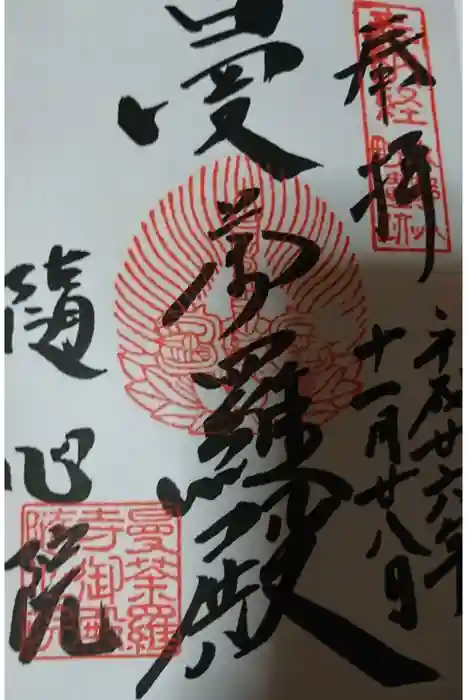 奉拝
平成廿六年
十一月廿八日
曼荼羅殿
隨心院
曼荼羅
寺御殿
隨心院